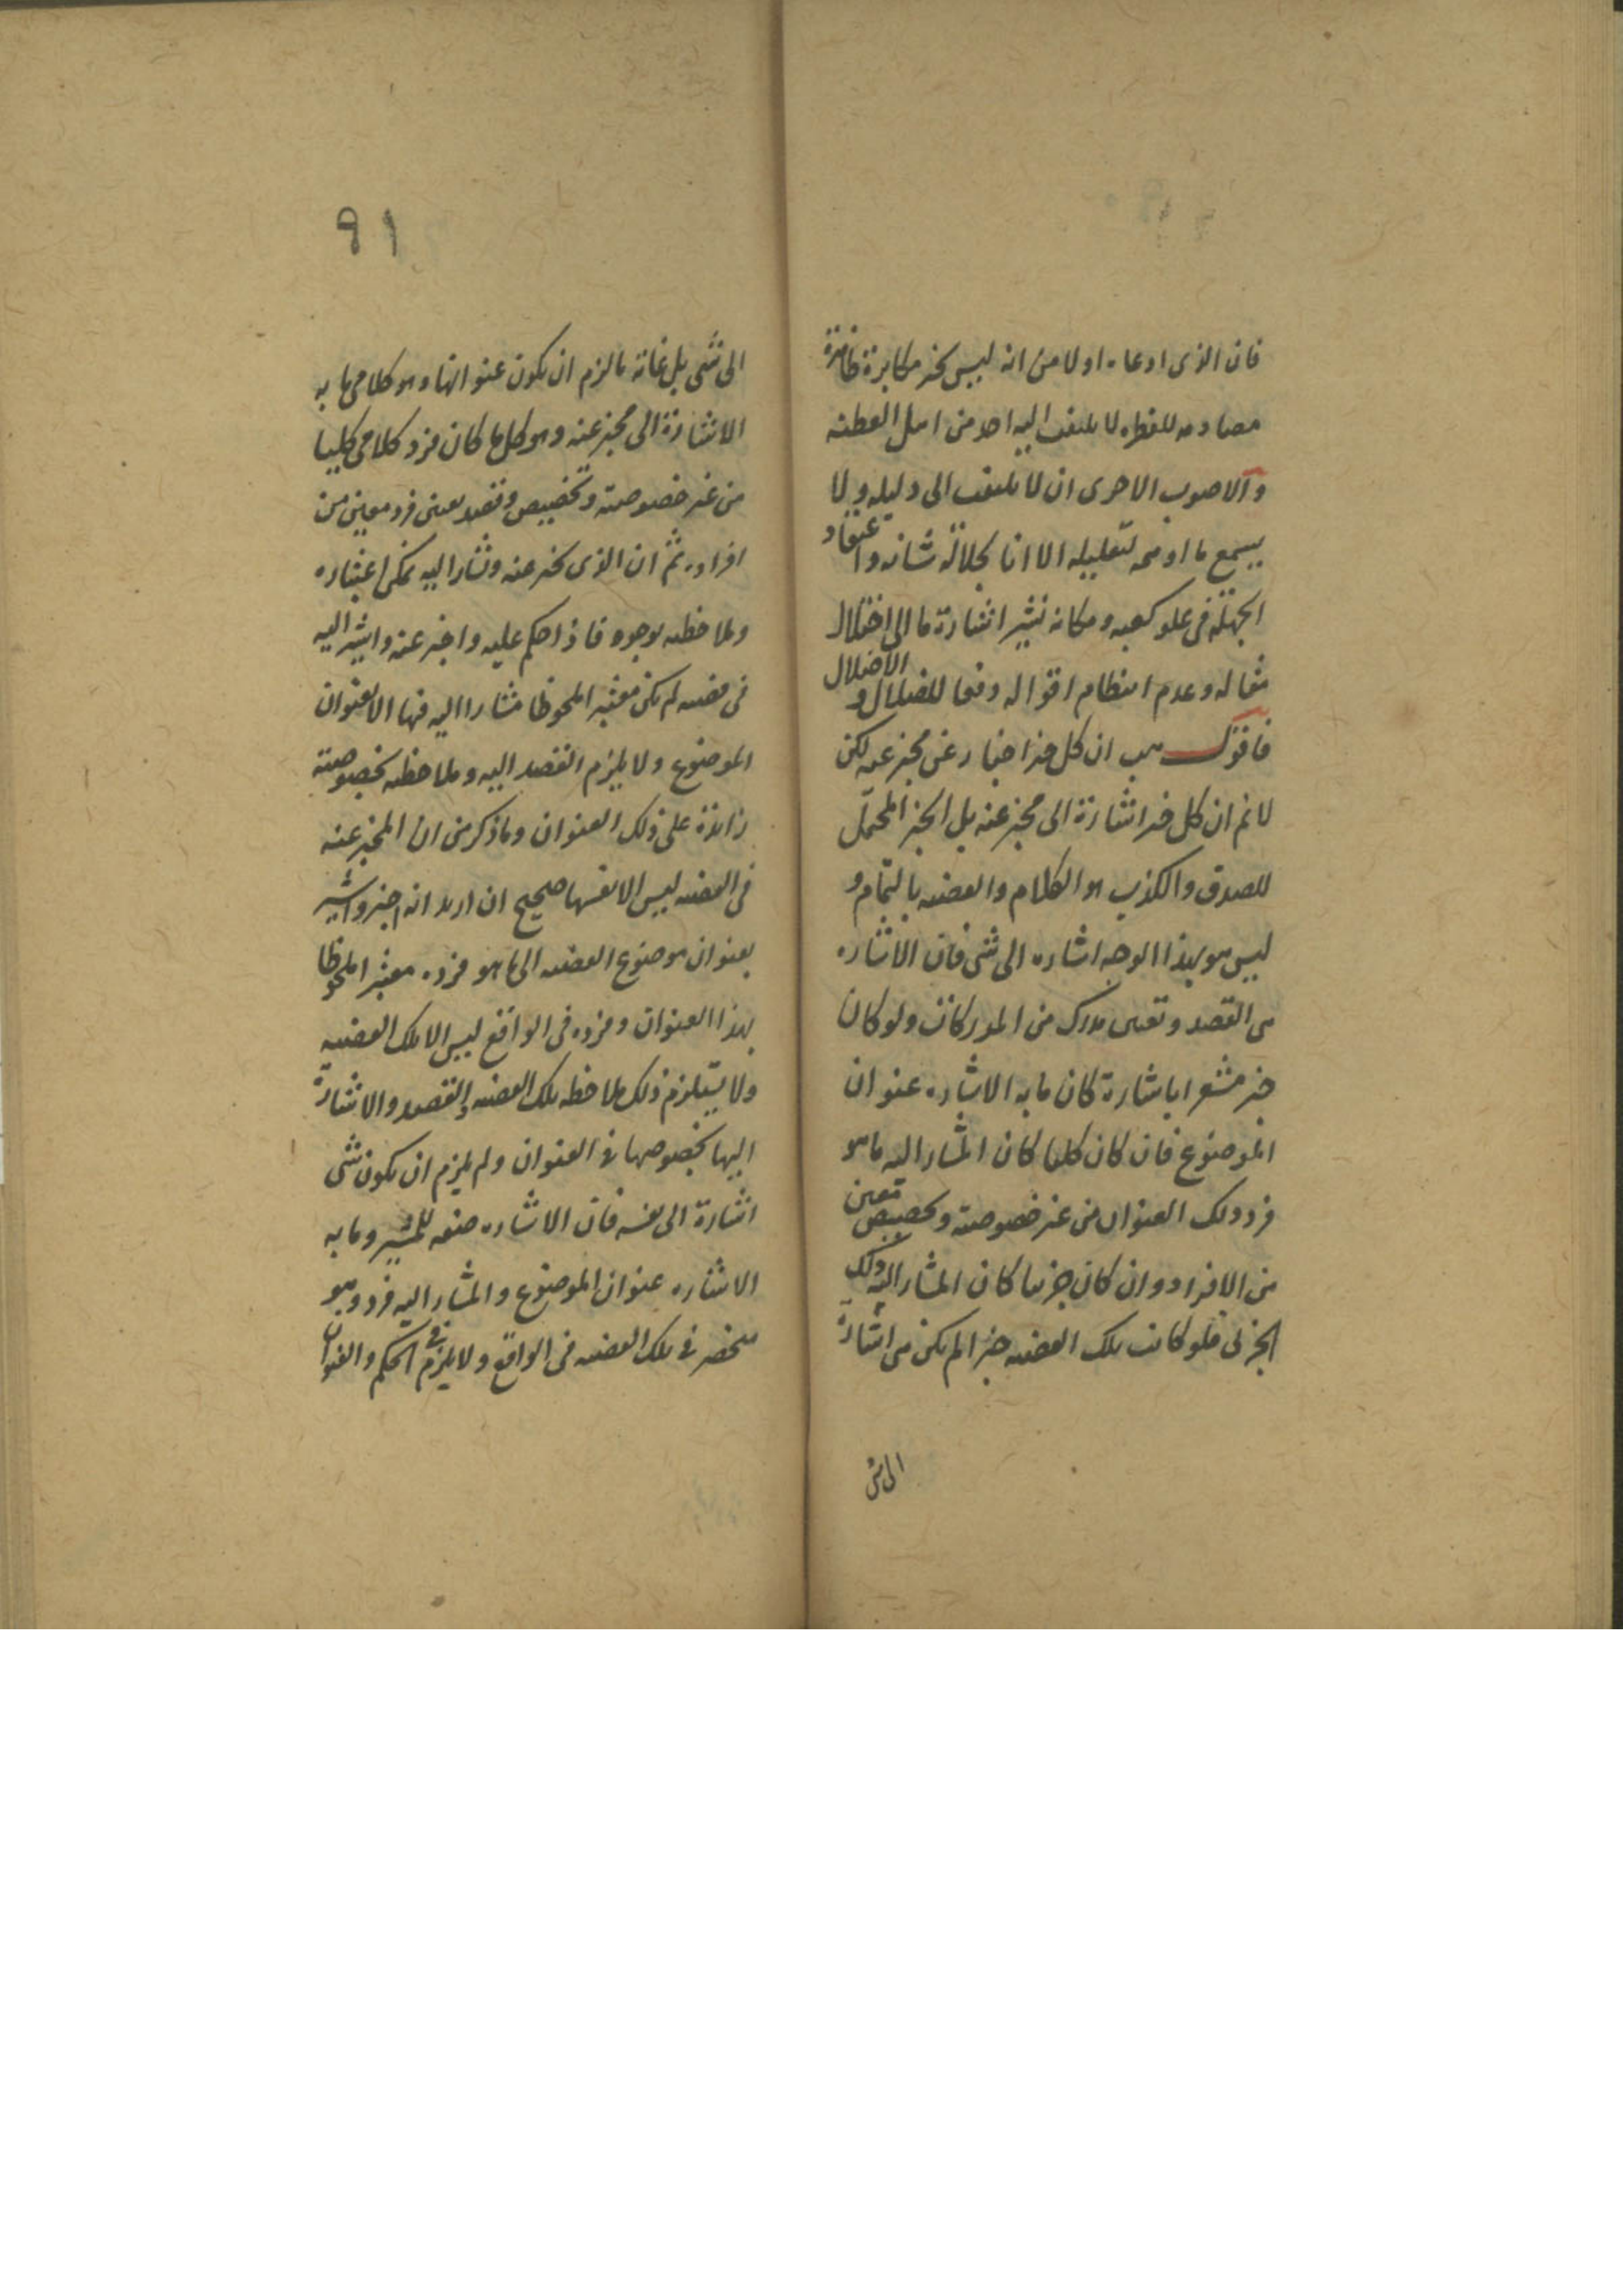 فان الذى ادعاه اولا من انه ليس بخبر مكابرة ظاهرة
مصادمه للفطره لا يلتفت اليه احد من اهل الفطنه
والاصوب الاحرى ان لا يلتفت الى دليله ولا
يسمع ما اوهمه لتعليله الا انا لجلالة شانه واعتقاد
الجهلة فى علو كعبه ومكانه نشير اشارة ما الى اختلال
مقاله وعدم انتظام اقواله دفعا للضلال والاضلال
فاقول هب ان كل خبر اخبار عن مخبر عنه لكن
لا نم ان كل خبر اشارة الى مخبر عنه بل الخبر المحتمل
للصدق والكذب هو الكلام والقضيه بالتمام و
ليس هو بهذا الوجه اشاره الى شى فان الاشاره
هى القصد وتعيين مدرك من المدركات ولو كان
خبر مشعرا باشارة كان ما به الاشاره عنوان
الموضوع فان كان كليا كان المشار اليه ما هو
فرد ذلك العنوان من غير خصوصية وتخصيص معين
من الافراد وان كان جزئيا كان المشار اليه ذلك
الجزئى فلو كانت تلك القضيه خبرا لم يكن هى اشارة
الى شى
٩١
الى شى بل غاية ما لزم ان يكون عنوانها وهو كلامى ما به
الاشارة الى مخبر عنه وهو كل ما كان فرد كلامى كليا
من غير خصوصية وتخصيص وقصد بعين فرد معين من
افراده ثم ان الذى يخبر عنه ويشار اليه يمكن اعتباره
وملاحظته بوجوه فاذا حكم عليه واخبر عنه واشير اليه
فى قضيه لم يكن معتبرا ملحوظا مشارا اليه فيها الا بعنوان
الموضوع ولا يلزم القصد اليه وملاحظته بخصوصية
زائدة على ذلك العنوان وما ذكر من ان المخبر عنه
فى القضيه ليس الا نفسها صحيح ان اريد انه اخبر واشير
بعنوان موضوع القضيه الى ما هو فرده معتبرا ملحوظا
بهذا العنوان وفرده فى الواقع ليس الا تلك القضيه
ولا يستلزم ذلك ملاحظه تلك القضيه والقصد والاشارة
اليها بخصوصها فى العنوان ولم يلزم ان يكون شى
اشارة الى نفسه فان الاشاره صنعه للمشير وما به
الاشاره عنوان الموضوع والمشار اليه فرد وهو
منحصر فى تلك القضيه فى الواقع ولا يلزم فى الحكم والعنوان